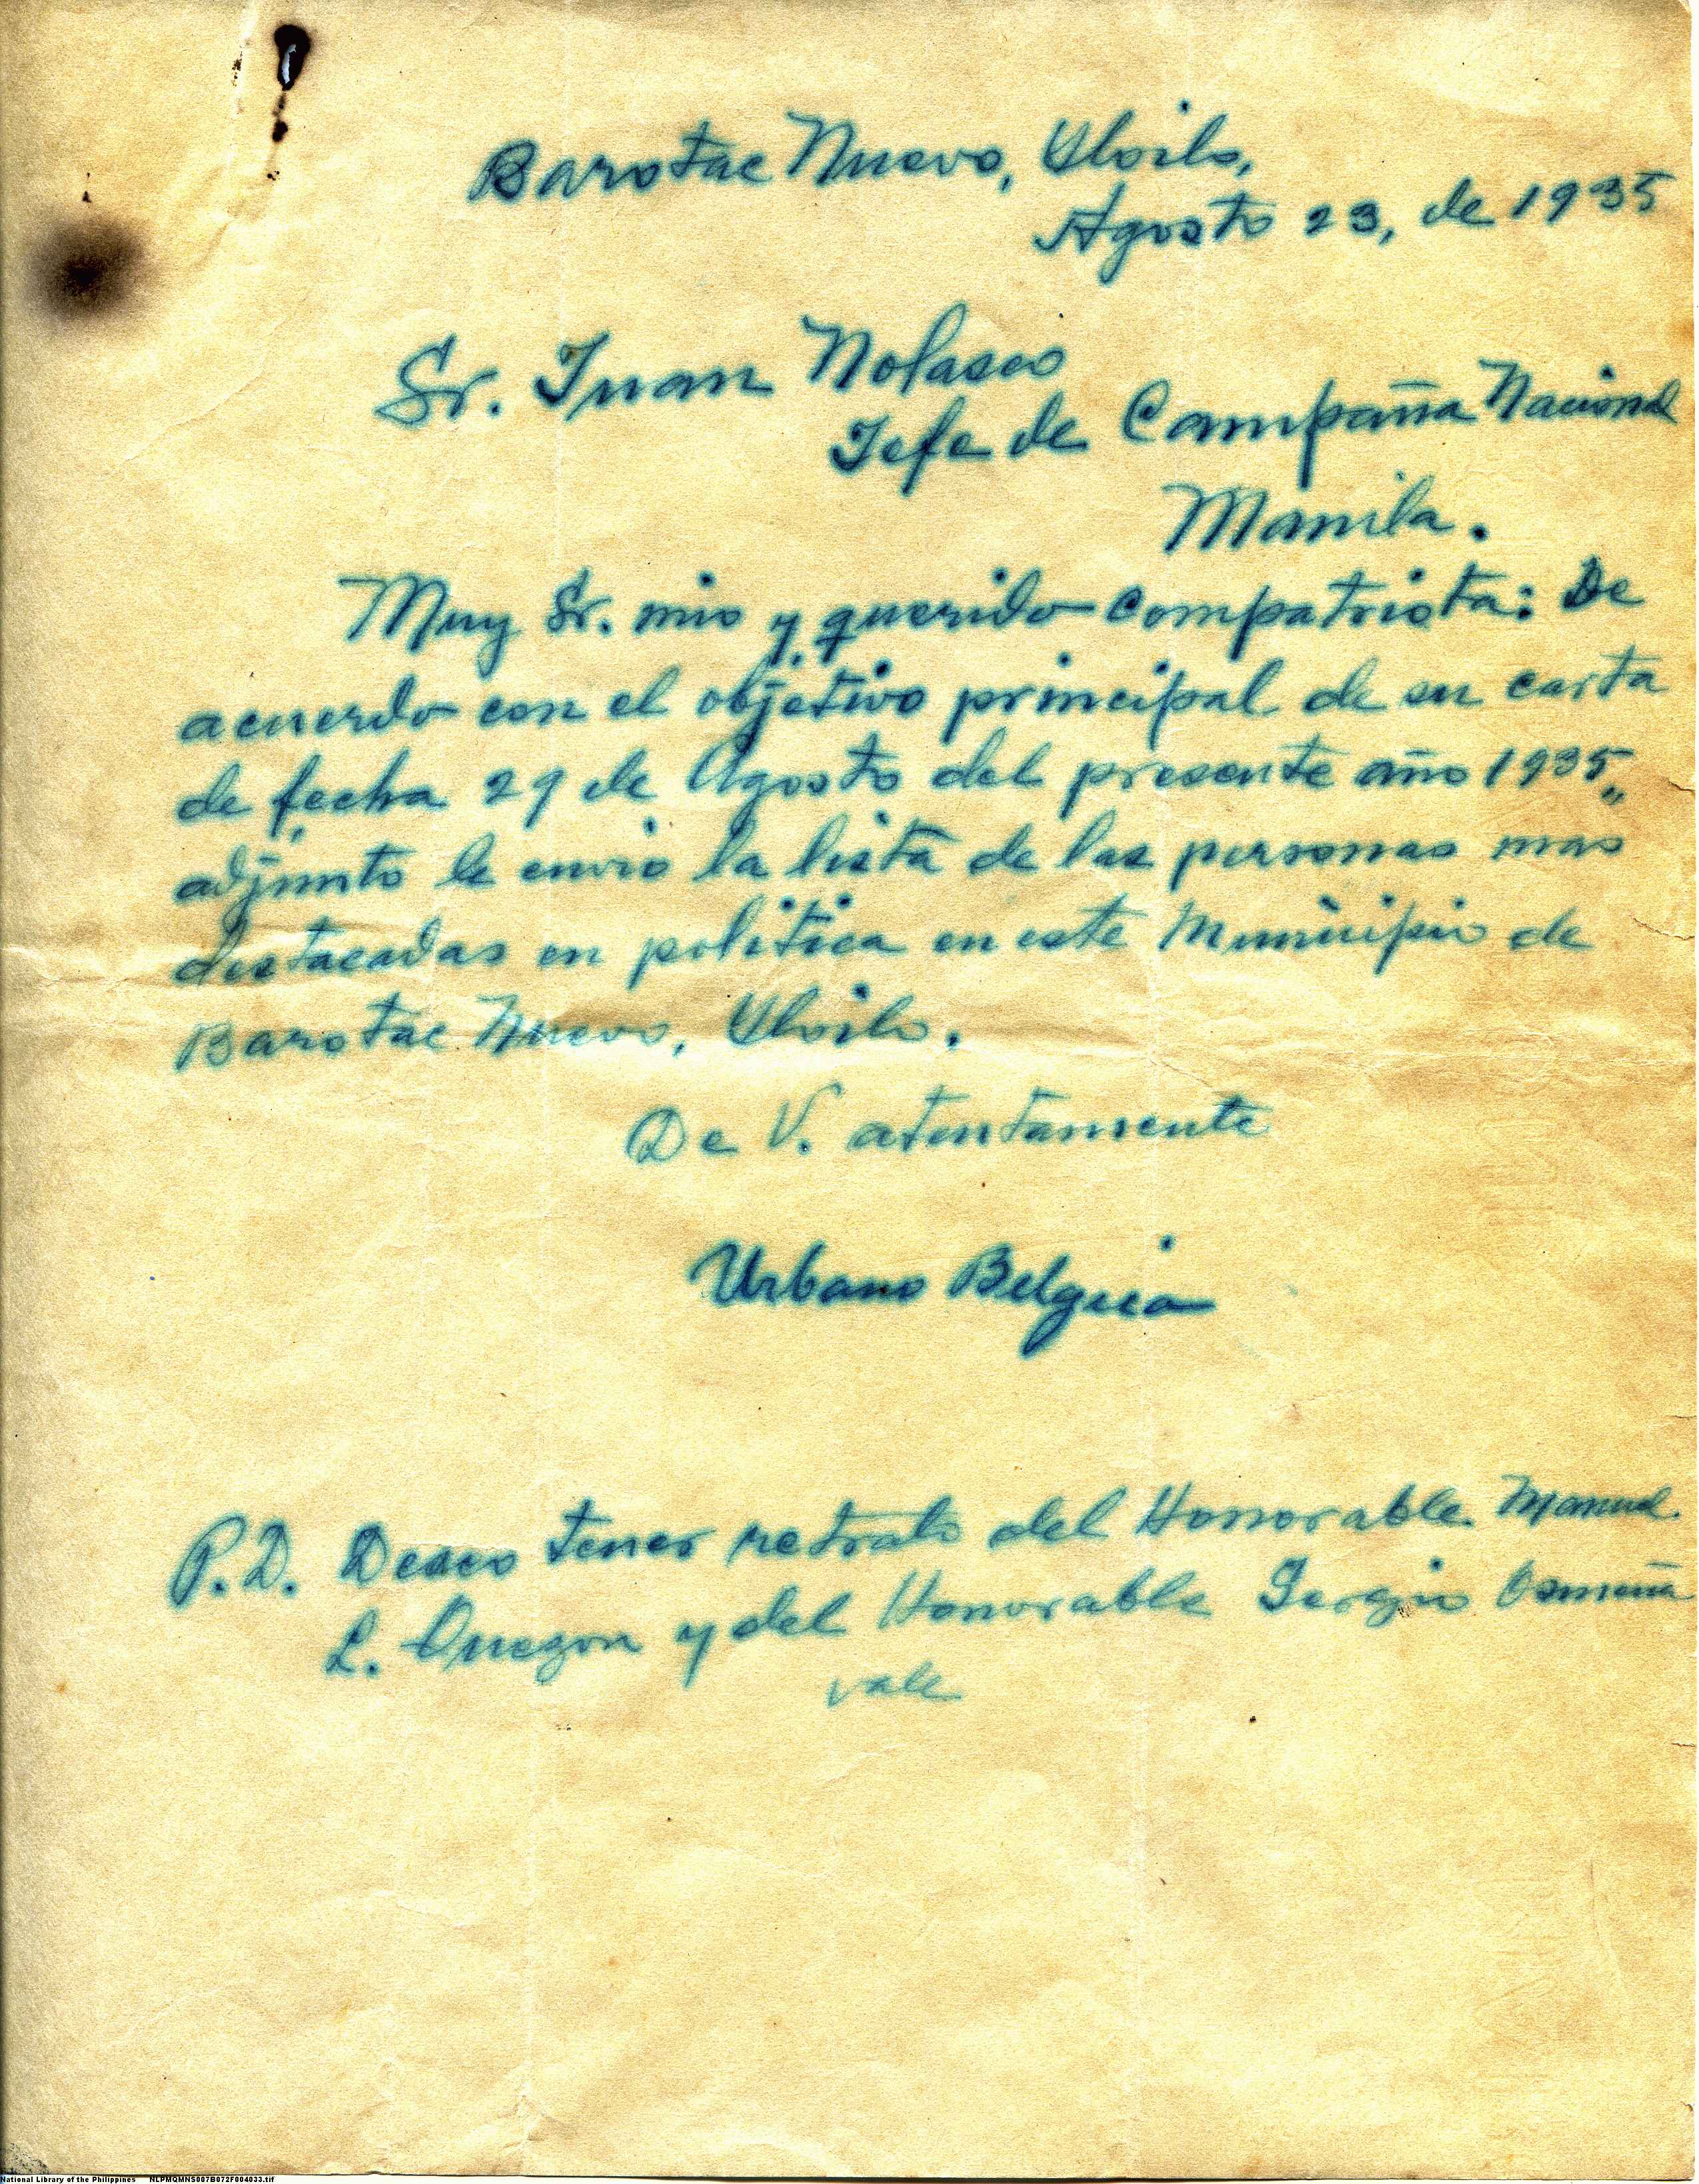 Barotac Nuevo, Yloilo,
Agosto 23, de 1935
Sr. Juan Nolasco
Jefe de Campaña Nacional
Manila.
Muy Sr. mio y querido compatriota: De
acuerdo con el objetivo principal de su carta
de fecha 29 de Agosto del presente año 1935,,
adjunto le envio la lista de las personas mas
destacadas en politica en este Municipio de
Barotac Nuevo, Yloilo.
De V. atentamente
Urbano
P.D. Deseo tener retrato del Honorable Manuel
L. Quezon y del Honorable Sergio Osmeña
vale
National Library of the Philippines NLPMQMNS007B072F004033.tif